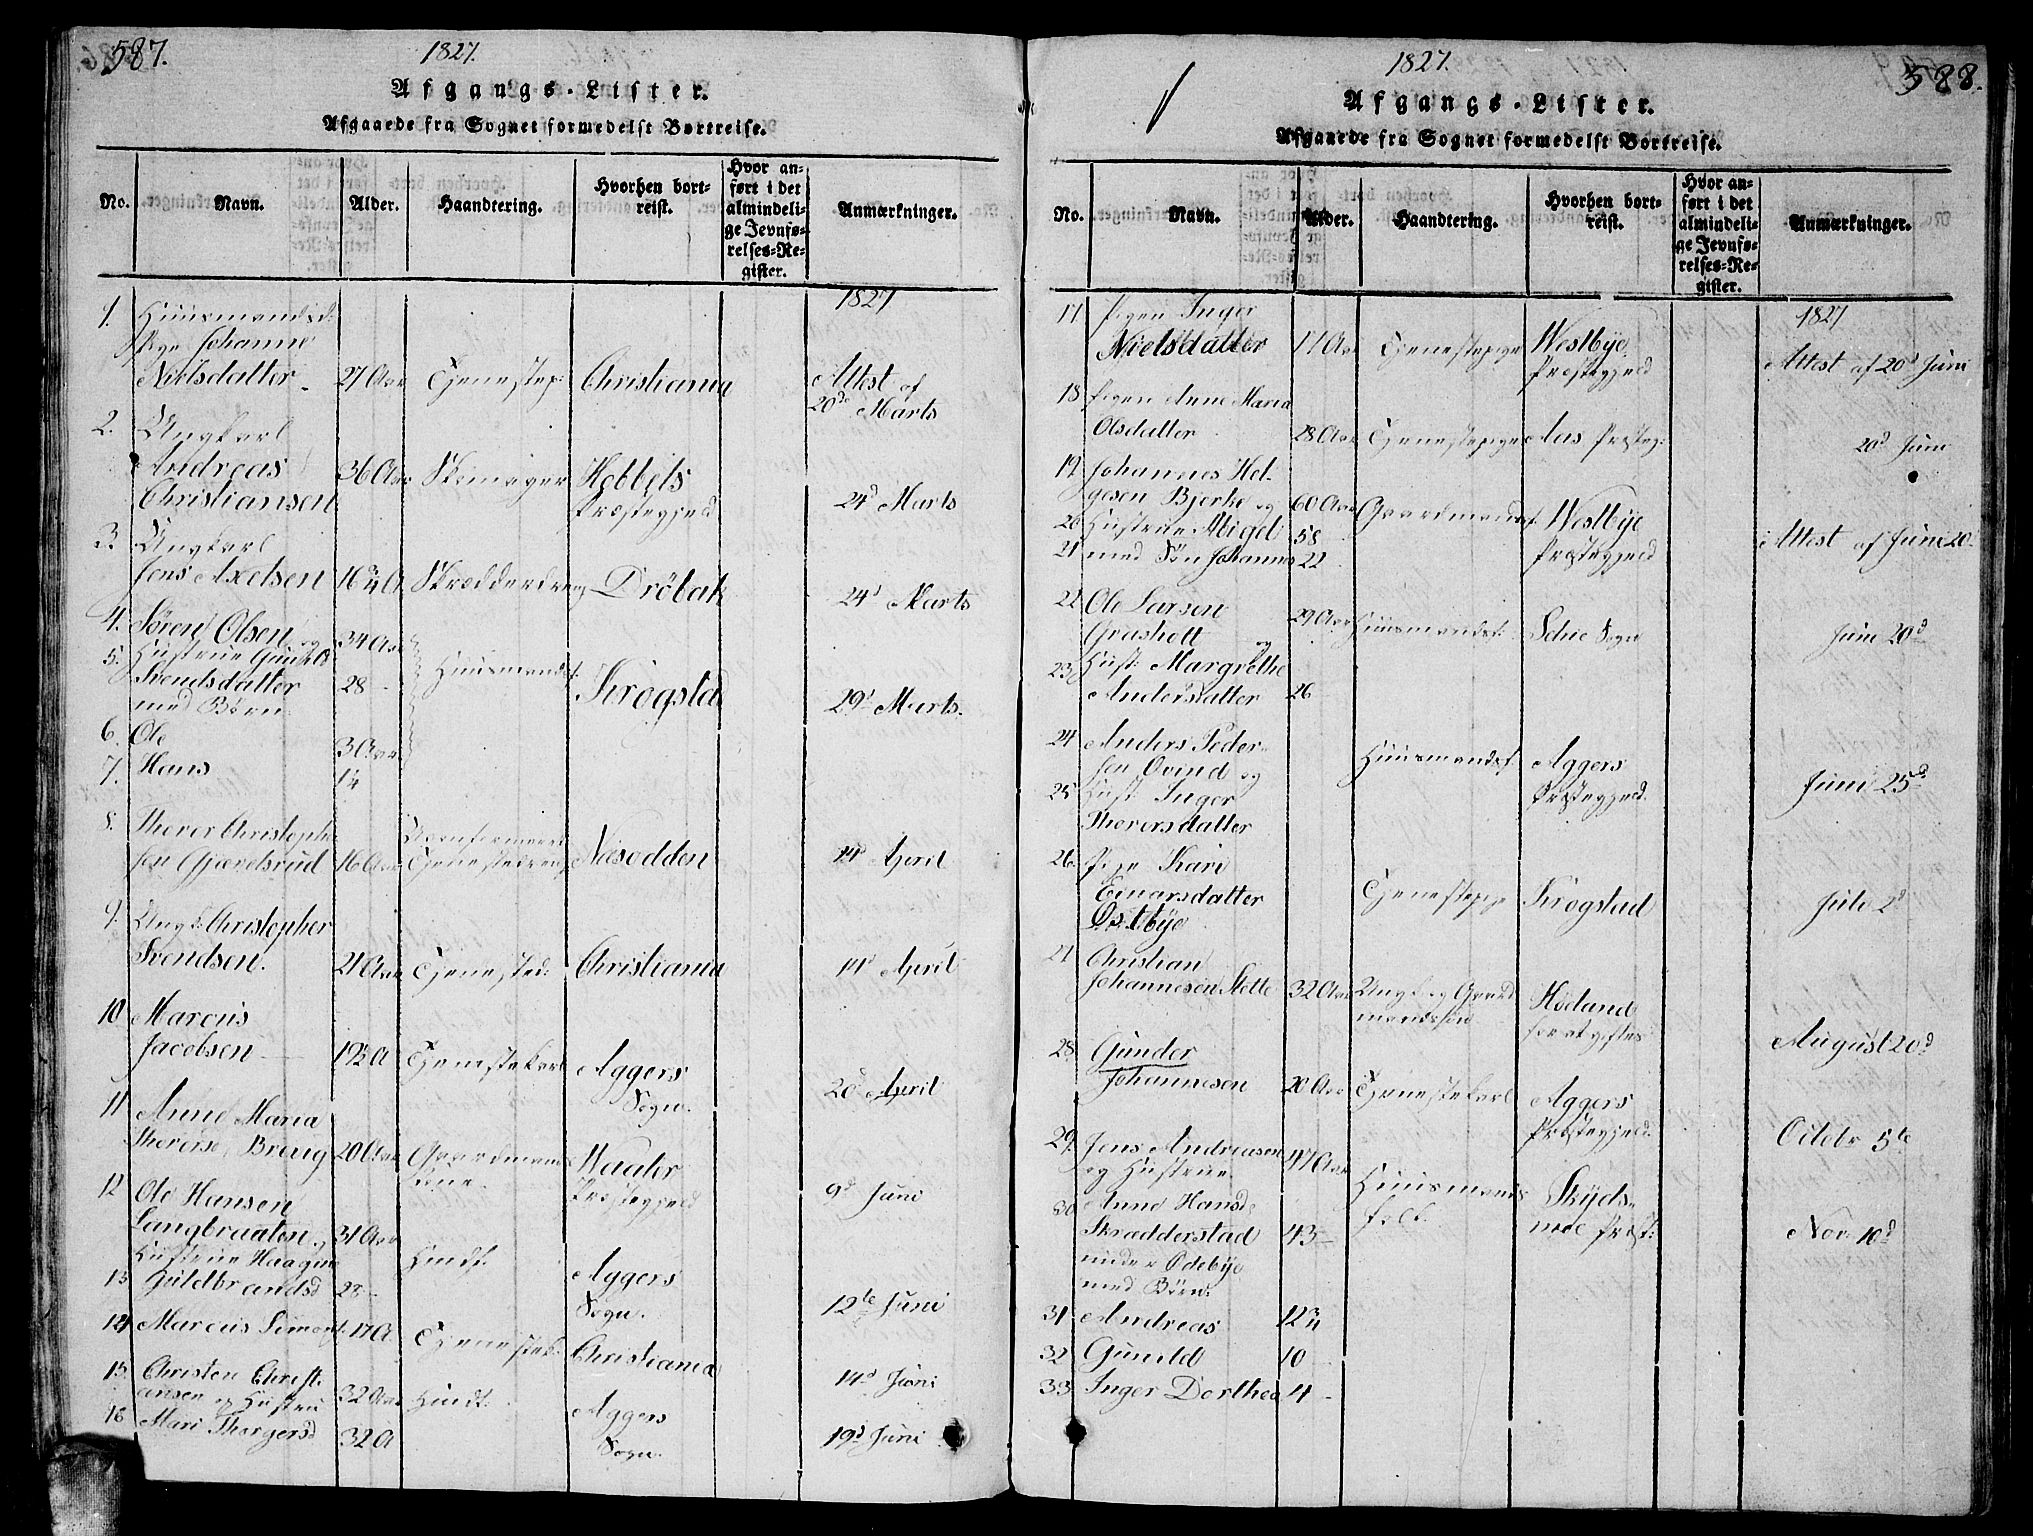 587.
1827.
Afgangs-Lister.
Afgaaede fra Sognet formedelst Bortreise.
No.
Navn.
Alder.
Haandtering.
Hvorhen bort-
reist.
Hvor an-
ført i det
almindeli-
ge Jevnfø-
relses-Re-
gister.
Anmærkninger.
1827
1. Huusmandsd:
Pige Johanne
Nielsdatter 27 Aar Tjenestep: Christiania Attest af
20de Marts
2. Ungkarl
Andreas 36 Aar Hobbøls
Christiansen Præstegjeld 24d Marts
3. Ungkarl
Jens Axelsen 16¾ A Skrædderdreng Drøbak 24d Marts
4. Søren Olsen og 34 Aar
5. Hustrue Gunild
Svendsdatter 28 Huusmandsf. Krogstad
med Børn 29d Marts.
6. Ole 3 Aar
7. Hans 1¼
8. Thorer Christoph
sen Gjævelsrud 16 Aar Tjenestedreng Næsodden 14d April
9. Ungk: Christopher
Svendsen. 21 Aar Tjenested: Christiania 14d April
10 Marcus
Jacobsen 19½ A Tjenestekarl Aggers
Sogn. 20d April
11 Anne Maria
Therese Breng 20 Aar Gaardmands Waaler
Præstegjeld 9d Juni
12 Ole Hansen
Langbraaten og 31 Aar
Hustrue Haagine Huusf. Aggers
13 Guldbrandsd 28 Sogn. 12te Juni
14 Marcus Simons. 17 A Tjenestek. Christiania 14d Juni
15 Christen Christi
ansen og Hustru 32 Aar Huusf. Aggers
16 Mari Thorgersd 32 A Sogn. 19d Juni
588.
1827.
Afgangs-Lister.
Afgaaede fra Sognet formedelst Bortreise.
No.
Navn.
Alder.
Haandtering.
Hvorhen bort-
reist.
Hvor an-
ført i det
almindeli-
ge Jevnfø-
relses-Re-
gister.
Anmærkninger.
1827
17 Pigen Inger
Nielsdatter 17 Aar Tjenestepige Westbye
Præstegjeld Attest af 20d Juni
18 Pigen Anne Maria
Olsdatter 28 Aar Tjenestepige Aas Præsteg: 20d Juni
19 Johannes Hel-
gesen Bjerke og 60 Aar Gaardmandsf. Westbye
20 Hustrue Abigel 58 Præstegjeld Attest af Juni 20
21 med Søn Johannes 22
22 Ole Larsen
Grasholt og 29 Aar Huusmandsf: Schie Sogn Juni 20d
23 Hust: Margrethe
Andersdatter 26
24 Anders Peder-
sen Øvind og Huusmandsf. Aggers
25 Hust: Inger Præstegjeld. Juni 25d
Thorersdatter
26. Pige Kari
Einarsdatter Tjenestepige Krogstad Juli 2d
Østbye
27 Christian
Johannesen Slette 32 Aar Ungk. og Gaard
mandssøn Høland
for at giftes August 20d
28. Gunder
Johannesen 20 Aar Tjenestekarl Aggers
Præstegjeld. Octobr 5te
29. Jens Andreasen 47 Aar
og Hustrue Huusmands
folk. Skyds-
moe Præst: Nov. 10d
30 Anne Hansd.
Skradderstad 43
under Odebye
med Børn.
31. Andreas 12¾
32 Gunild 10
33 Inger Dorthea 4